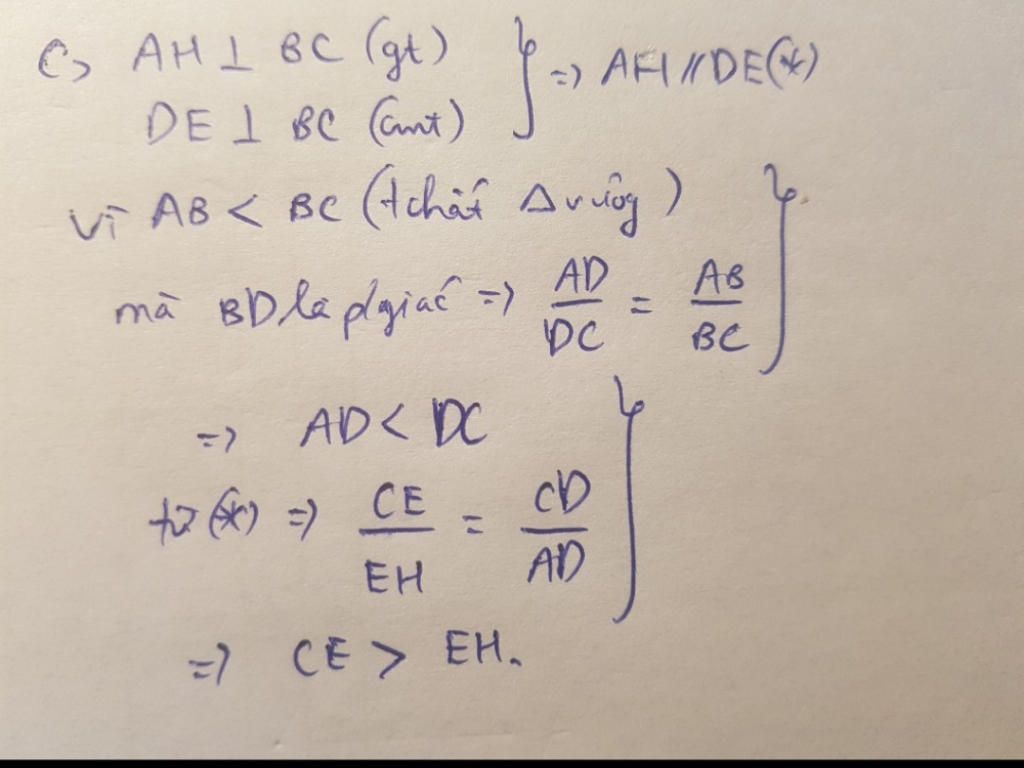 c, AH ⊥ BC (gt)
DE ⊥ BC (cmt)
} => AH // DE (*)
Vì AB < BC (t chất Δ vuôg)
mà BD là p/giác => AD/DC = AB/BC
=> AD < DC
từ (*) => CE/EH = CD/AD
=> CE > EH.